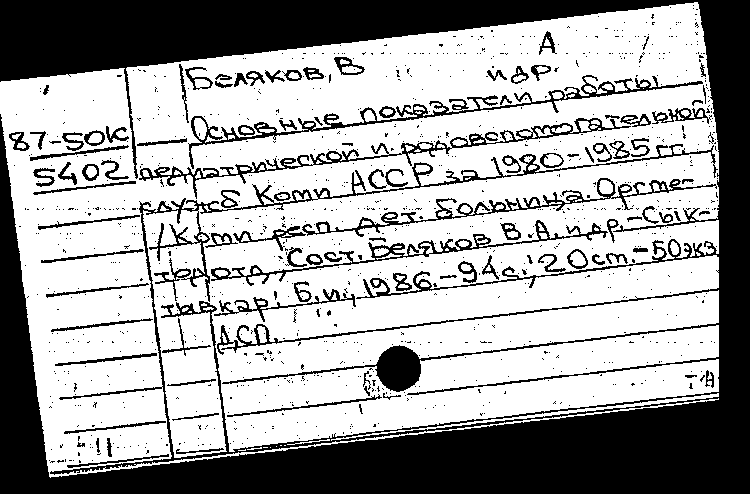 А
Беляков, В и др.
87-50к Основные показатели работы
5402 педиатрической и родовспомогательной
служб Коми АССР за 1980-1985 гг.
/Коми респ. дет. больница. Оргме-
тодотд.; Сост. Беляков В.А. и др.-Сык-
тывкар: Б.и., 1986.-94с.; 20см.-50экз
ДСП.
11